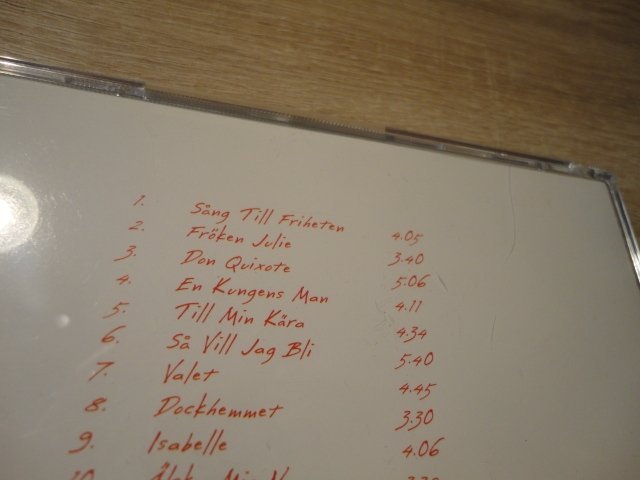 1. Sång Till Friheten 4.05
2. Fröken Julie 3.40
3. Don Quixote 5.06
4. En Kungens Man 4.11
5. Till Min Kära 4.34
6. Så Vill Jag Bli 5.40
7. Valet 4.45
8. Dockhemmet 3.30
9. Isabelle 4.06
10.